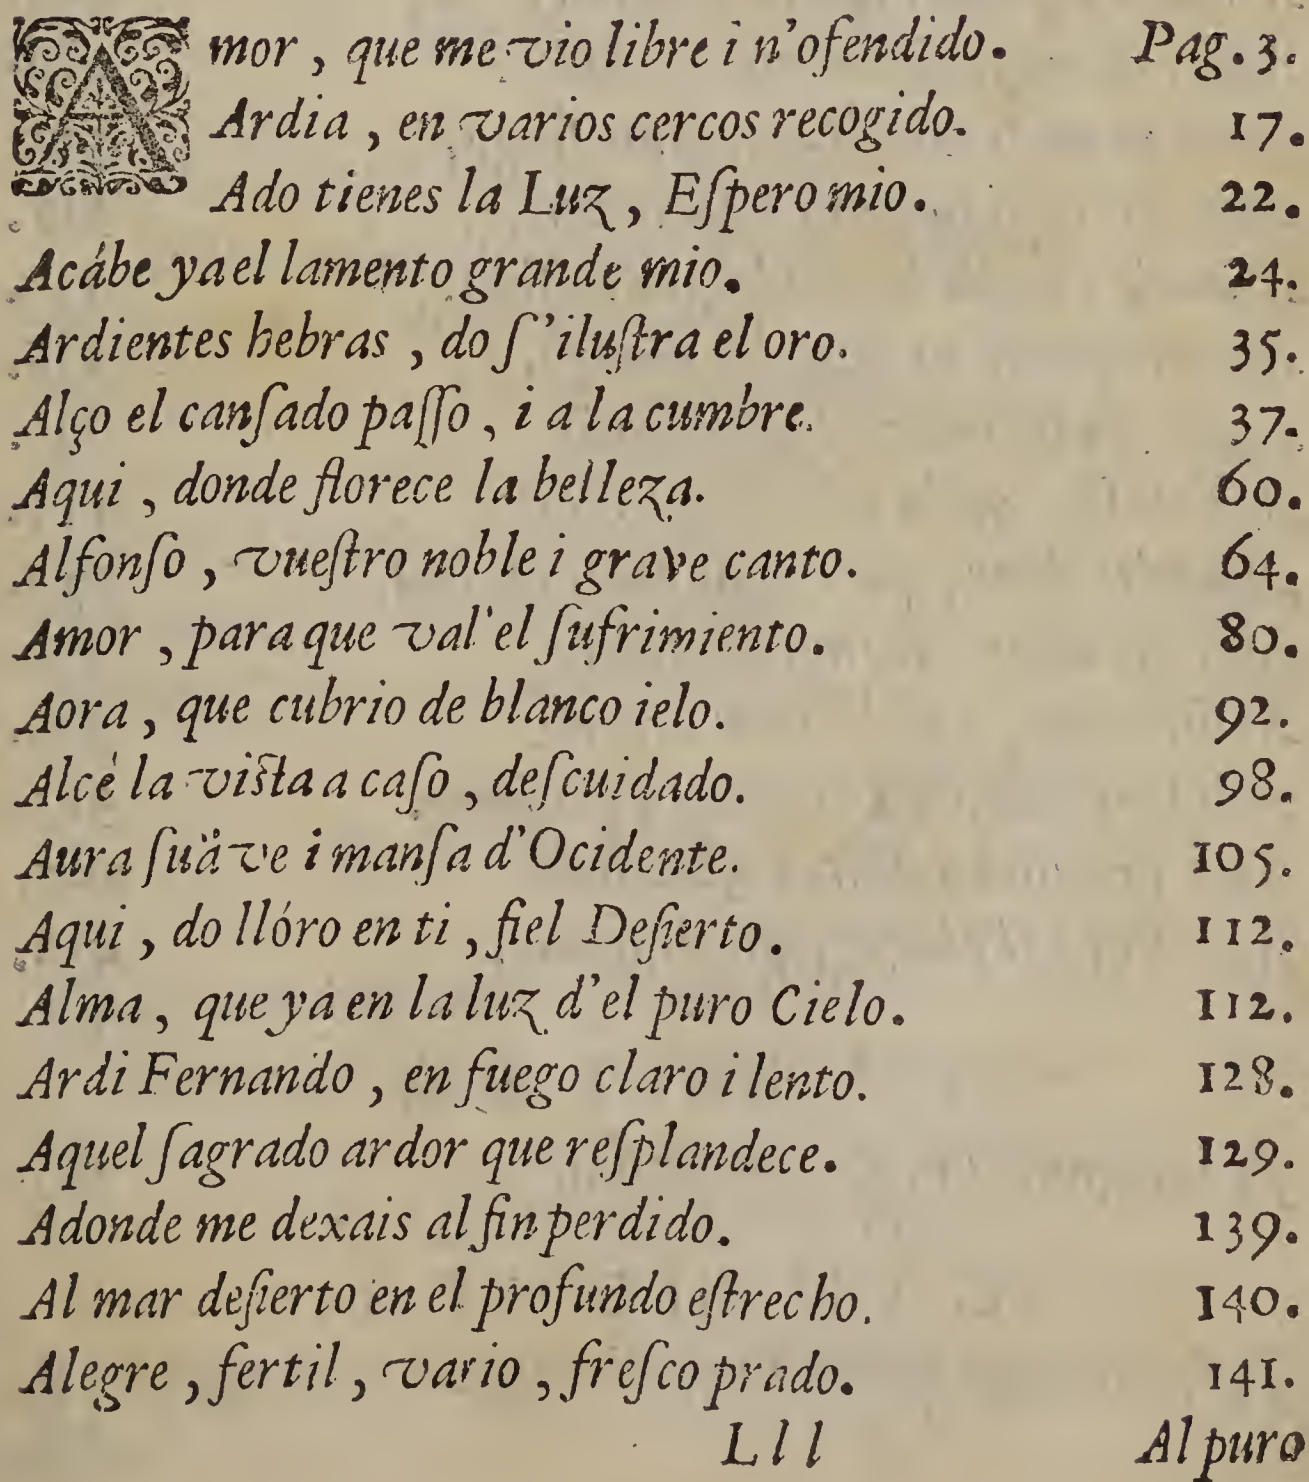 Amor, que me vio libre i n'ofendido. Pag. 3.
Ardia, en varios cercos recogido. 17.
Ado tienes la Luz, Eſpero mio. 22.
Acábe ya el lamento grande mio. 24.
Ardientes hebras, do ſ'iluſtra el oro. 35.
Alço el canſado paſſo, i a la cumbre. 37.
Aqui, donde florece la belleza. 60.
Alfonſo, vueſtro noble i grave canto. 64.
Amor, para que val'el ſufrimiento. 80.
Aora, que cubrio de blanco ielo. 92.
Alcé la viſta a caſo, deſcuidado. 98.
Aura ſuäve i manſa d'Ocidente. 105.
Aqui, do llóro en ti, fiel Deſierto. 112.
Alma, que ya en la luz d'el puro Cielo. 112.
Ardi Fernando, en fuego claro i lento. 128.
Aquel ſagrado ardor que reſplandece. 129.
Adonde me dexais al fin perdido. 139.
Al mar deſierto en el profundo eſtrecho. 140.
Alegre, fertil, vario, freſco prado. 141.
Lll Al puro